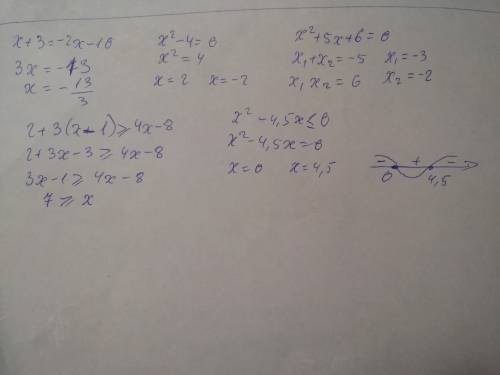 x+3=-2x-10
3x=-13
x=-13/3
x²-4=0
x²=4
x=2 x=-2
x²+5x+6=0
x₁+x₂=-5 x₁=-3
x₁x₂=6 x₂=-2
2+3(x-1)≥4x-8
2+3x-3≥4x-8
3x-1≥4x-8
7≥x
x²-4,5x≤0
x²-4,5x=0
x=0 x=4,5
- + -
0 4,5